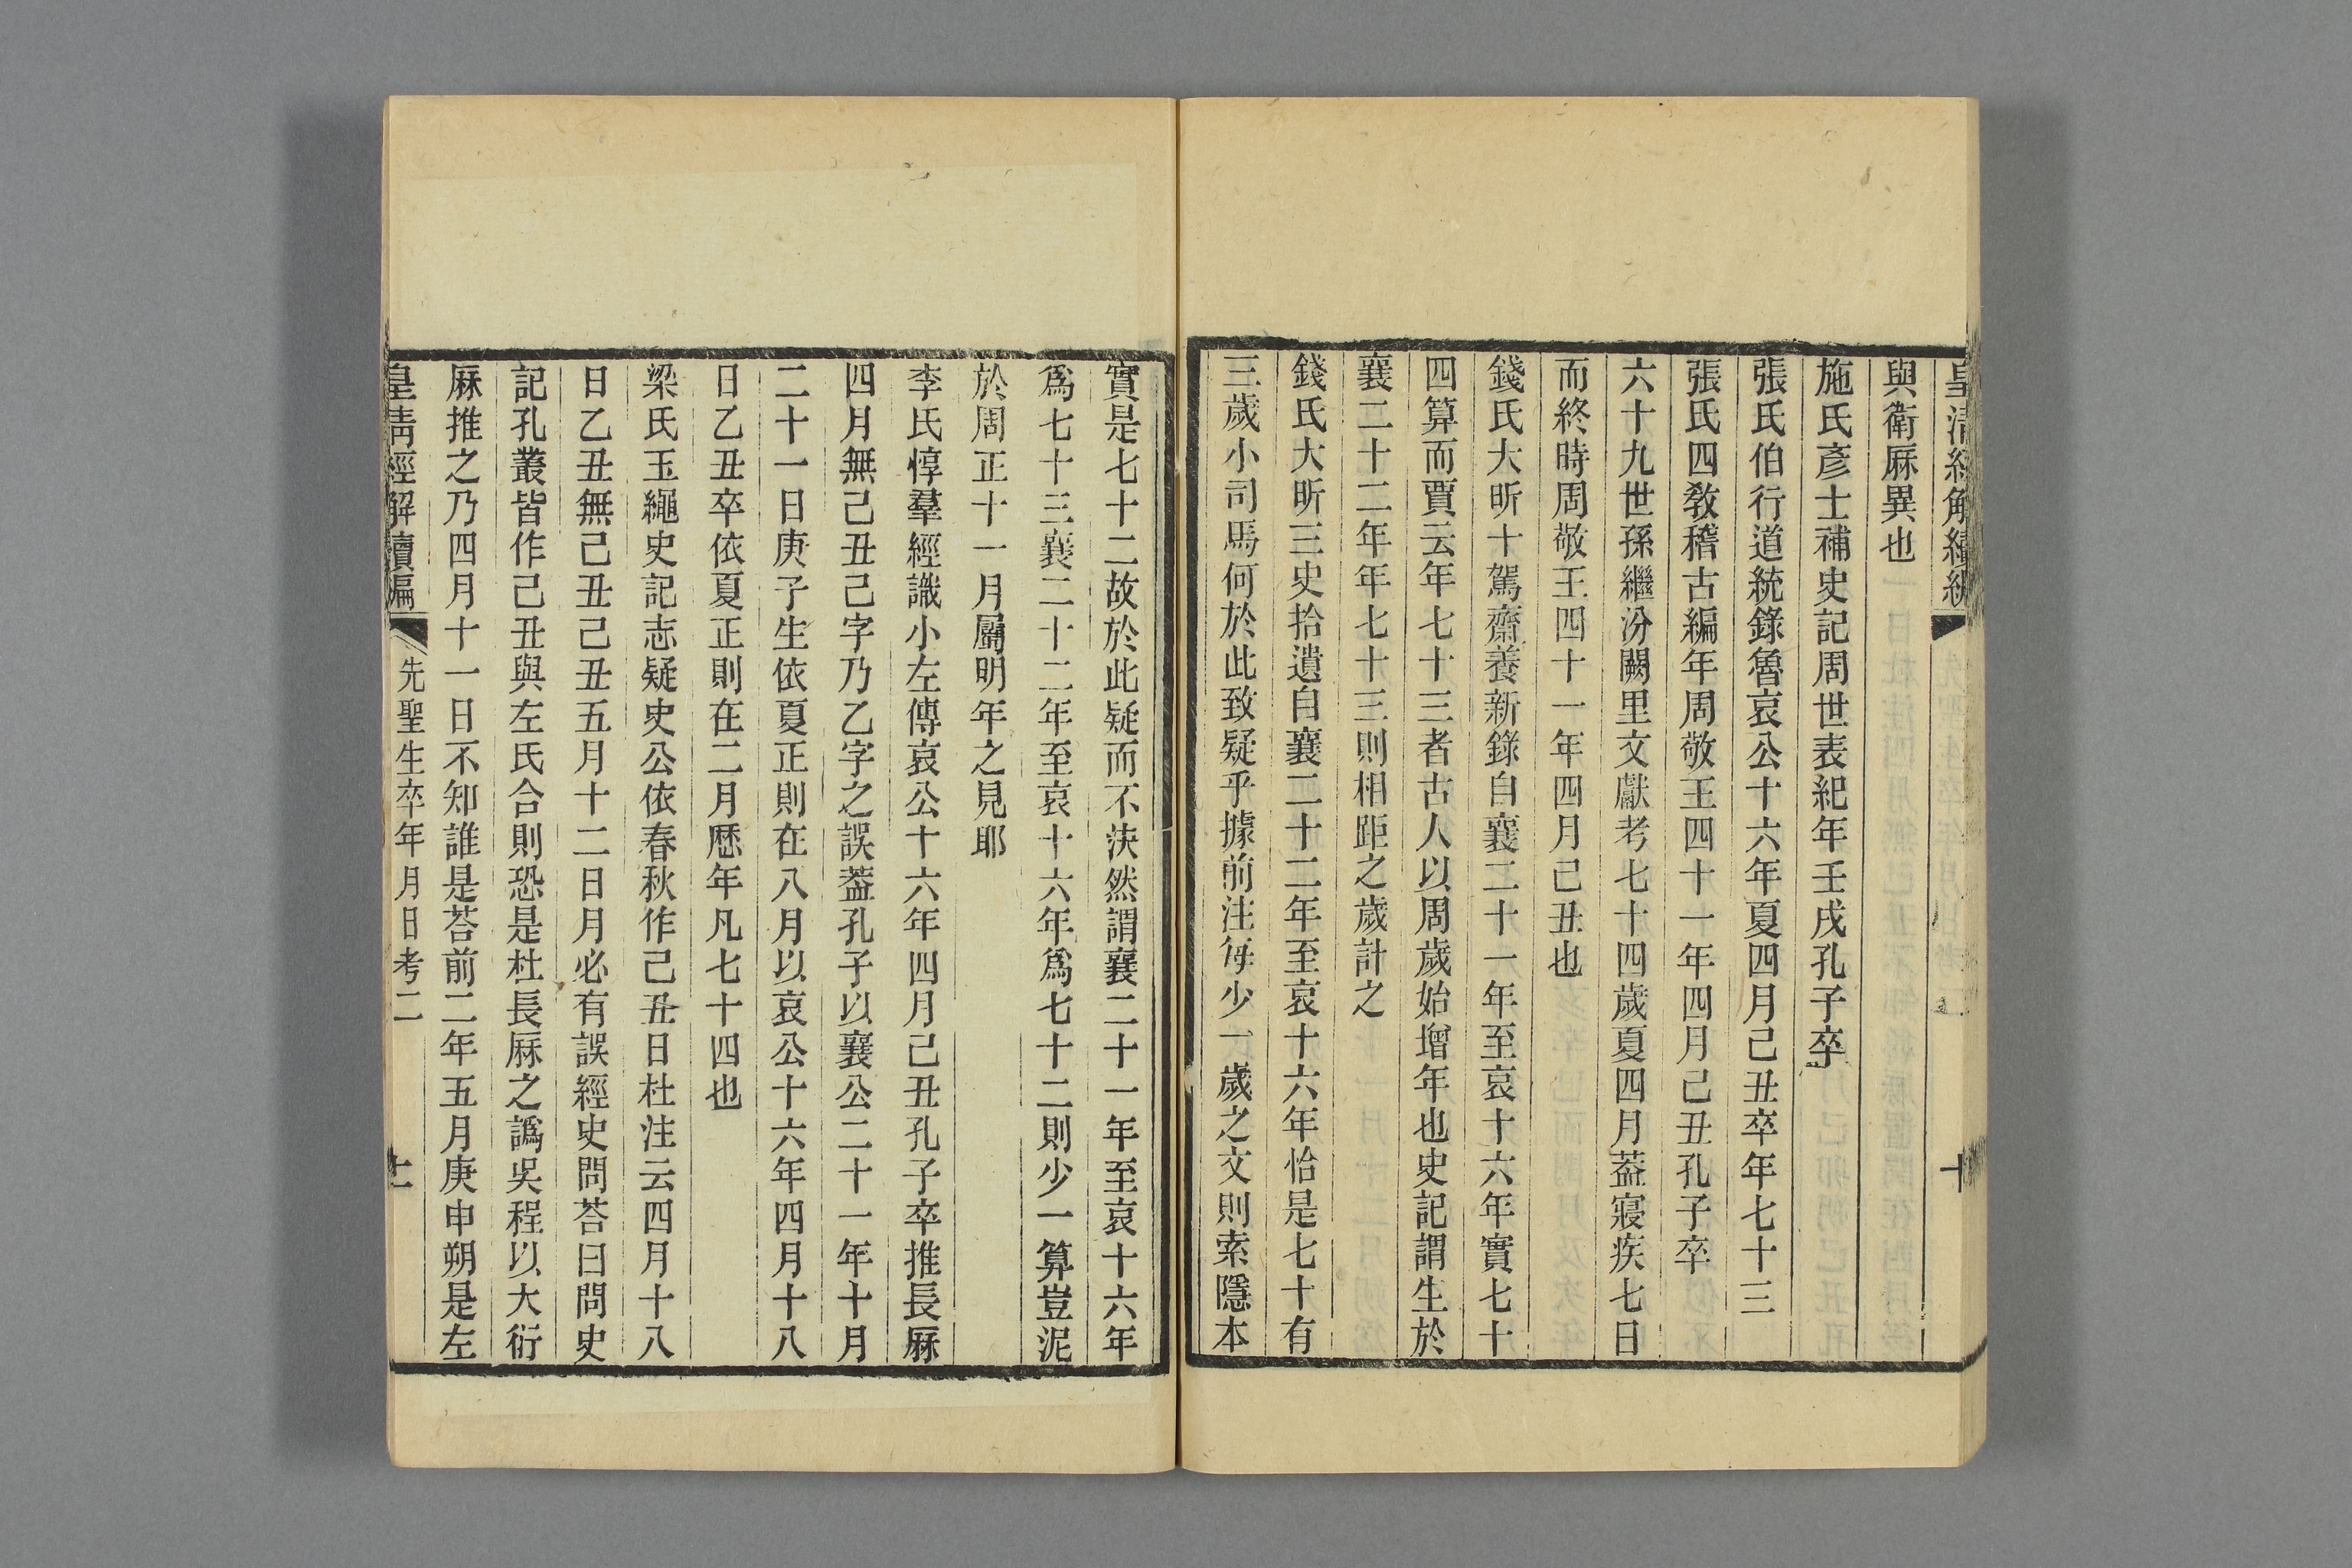 皇清經解續編
十
與衞厤異也
施氏彥士補史記周世表紀年壬戌孔子卒
張氏伯行道統錄魯哀公十六年夏四月己丑卒年七十三
張氏四教稽古編年周敬王四十一年四月己丑孔子卒
六十九世孫繼汾闕里文獻考七十四歲夏四月葢寢疾七日
而終時周敬王四十一年四月己丑也
錢氏大昕十駕齋養新錄自襄二十一年至哀十六年實七十
四算而賈云年七十三者古人以周歲始增年也史記謂生於
襄二十二年年七十三則相距之歲計之
錢氏大昕三史拾遺自襄二十二年至哀十六年恰是七十有
三歲小司馬何於此致疑乎據前注每少一歲之文則索隱本
實是七十二故於此疑而不決然謂襄二十一年至哀十六年
爲七十三襄二十二年至哀十六年爲七十二則少一算豈泥
於周正十一月屬明年之見耶
李氏惇羣經識小左傳哀公十六年四月己丑孔子卒推長厤
四月無己丑己字乃乙字之誤葢孔子以襄公二十一年十月
二十一日庚子生依夏正則在八月以哀公十六年四月十八
日乙丑卒依夏正則在二月歷年凡七十四也
梁氏玉繩史記志疑史公依春秋作己丑日杜注云四月十八
日乙丑無己丑己丑五月十二日月必有誤經史問荅曰問史
記孔叢皆作己丑與左氏合則恐是杜長厤之譌吳程以大衍
厤推之乃四月十一日不知誰是荅前二年五月庚申朔是左
皇清經解續編
先聖生卒年月日考二
十一